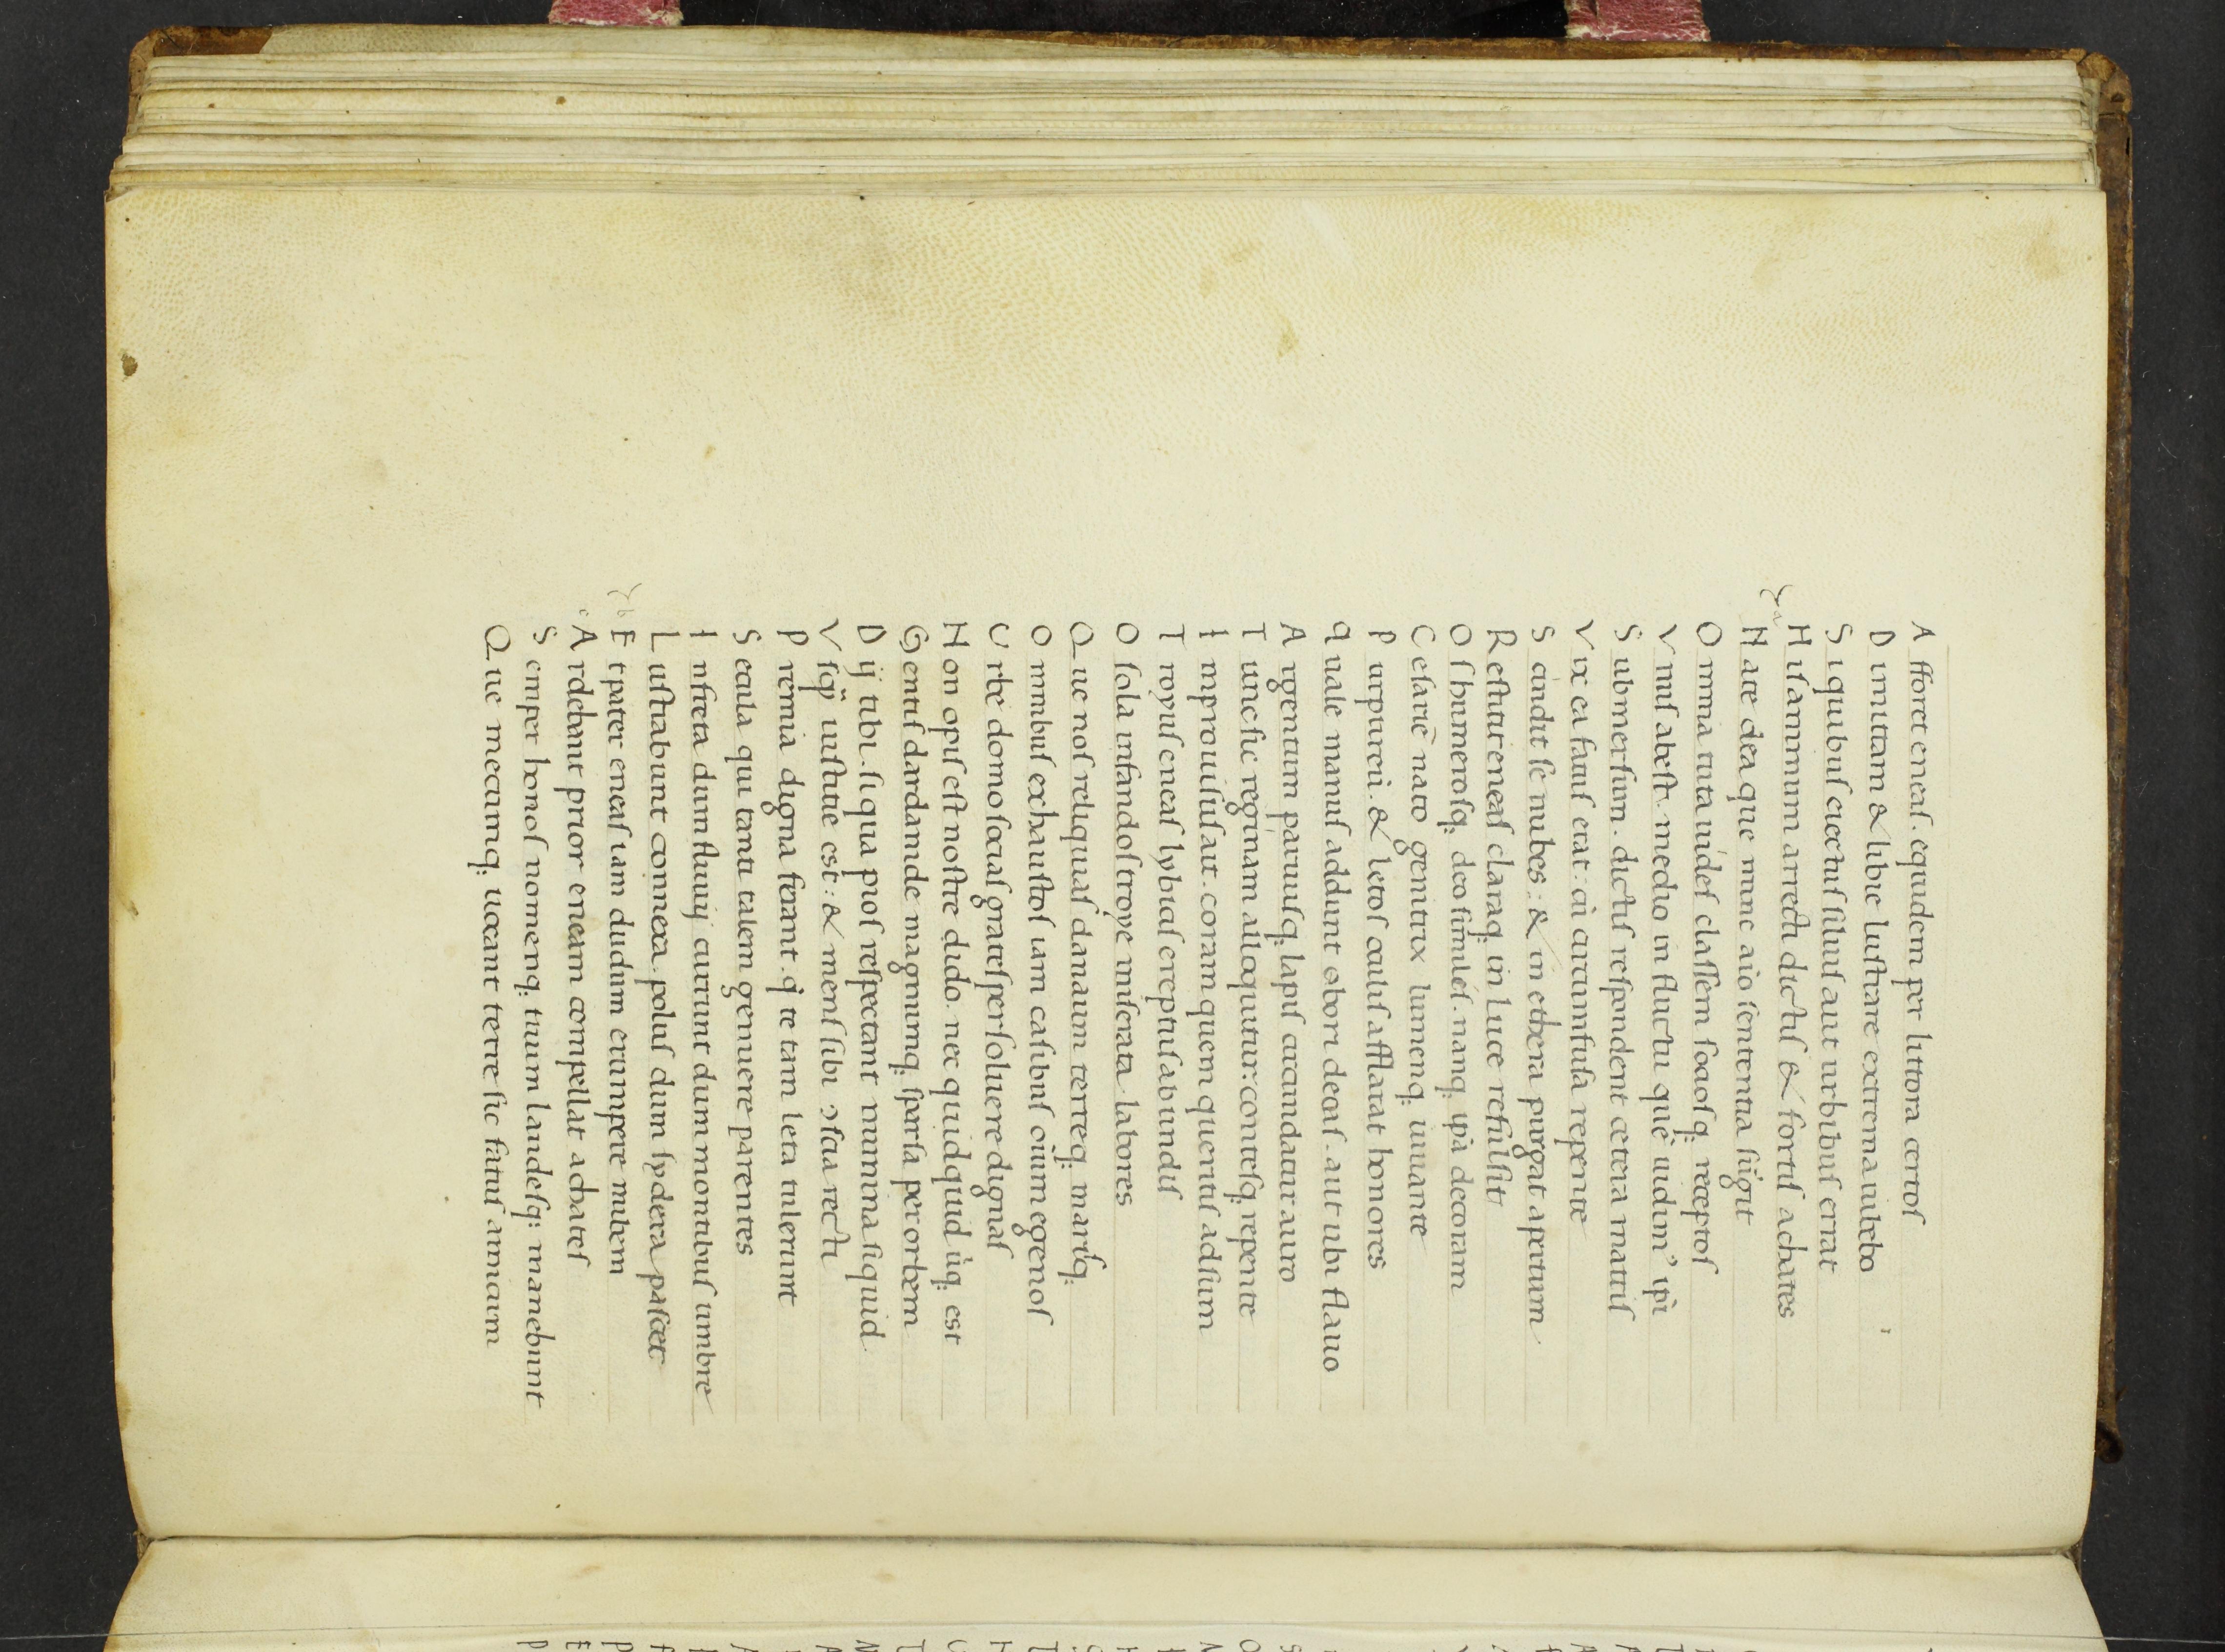 A fforet eneas. equidem per littora certos
D imittam & libie lustrare extrema iubebo
S i quibus eiectus siluis aut urbibus errat
H is animum arrecti dictis & fortis achates
N ate dea que nunc aīo sententia surgit
O mnia tuta uides classem sociosq; receptos
V nus abest. medio in fluctu quē uidim' ip̄i
S ubmersum. dictis respondent cetera matris
V ix ea fatus erat. cū circumfusa repente
S cindit se nubes: & in ethera purgat apertum
R estitit eneas claraq; in luce refulsit
O s humerosq; deo similes. nanq; ip̄a decoram
C esariē nato genitrix lumenq; iuuante
P urpureū. & letos oculis afflarat honores
q uale manus addunt ebori decus. aut ubi flauo
A rgentum pariusq; lapis circundatur auro
T unc sic reginam alloquitur: contesq; repente
I mprouisus ait. coram quem queritis adsum
T royus eneas lybicis ereptus ab undis
O sola infandos troye miserata labores
Q ue nos reliquias danaum terreq; marisq;
O mnibus exhaustos iam casibus oīum egenos
U rbe domo socias grates persoluere dignas
N on opis est nostre dido. nec quidquid ūq; est
G entis dardanide magnumq; sparsa per orbem
D ij tibi. si qua pios respectant numina si quid
V sq̄ iustitie est: & mens sibi ↄscia recti
P remia digna ferant. q̄ te tam leta tulerunt
S ecula qui tanti talem genuere parentes
I n freta dum fluuij current dum montibus umbre
L ustrabunt connexa. polus dum sydera pascet
E t pater eneas iam dudum erumpere nubem
A rdebant prior eneam compellat achates
S emper honos nomenq; tuum laudesq; manebunt
Q ue mecumq; uocant terre sic fatus amicum